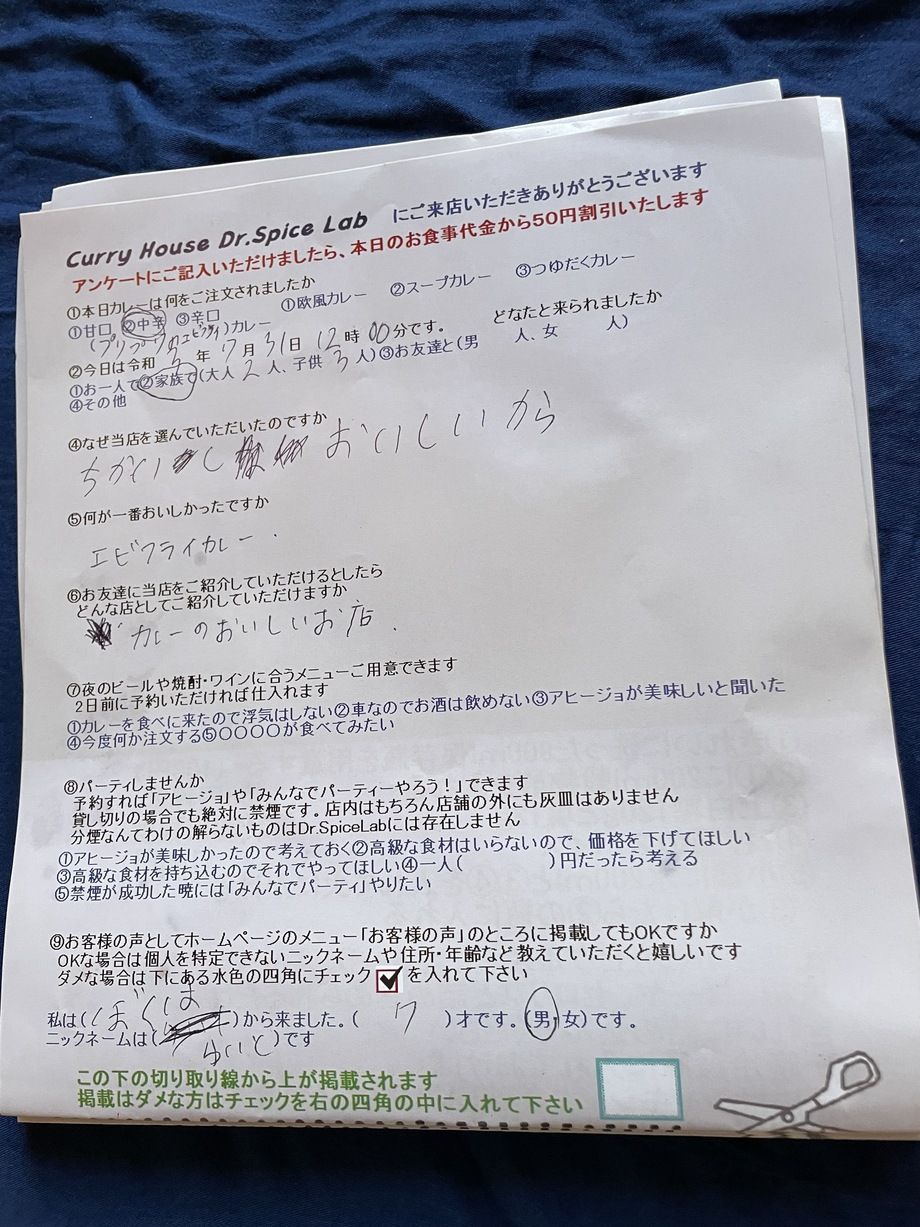 Curry House Dr.Spice Lab にご来店いただきありがとうございます
アンケートにご記入いただけましたら、本日のお食事代金から50円割引いたします
①本日カレーは何をご注文されましたか ①欧風カレー ②スープカレー ③つゆだくカレー
①甘口 ②中辛 ③辛口
(プリプリのエビフライ)カレー
②今日は令和 5 年 7 月 31 日 12 時 00 分です。 どなたと来られましたか
①お一人で②家族で(大人 2 人、子供 3 人)③お友達と(男 人、女 人)
④その他
④なぜ当店を選んでいただいたのですか
ちかいし おいしいから
⑤何が一番おいしかったですか
エビフライカレー.
⑥お友達に当店をご紹介していただけるとしたら
どんな店としてご紹介していただけますか
カレーのおいしいお店.
⑦夜のビールや焼酎・ワインに合うメニューご用意できます
2日前に予約いただければ仕入れます
①カレーを食べに来たので浮気はしない②車なのでお酒は飲めない③アヒージョが美味しいと聞いた
④今度何か注文する⑤〇〇〇〇が食べてみたい
⑧パーティしませんか
予約すれば「アヒージョ」や「みんなでパーティーやろう!」できます
貸し切りの場合でも絶対に禁煙です。店内はもちろん店舗の外にも灰皿はありません
分煙なんてわけの解らないものはDr.SpiceLabには存在しません
①アヒージョが美味しかったので考えておく②高級な食材はいらないので、価格を下げてほしい
③高級な食材を持ち込むのでそれでやってほしい④一人( )円だったら考える
⑤禁煙が成功した暁には「みんなでパーティ」やりたい
⑨お客様の声としてホームページのメニュー「お客様の声」のところに掲載してもOKですか
OKな場合は個人を特定できないニックネームや住所・年齢など教えていただくと嬉しいです
ダメな場合は下にある水色の四角にチェック を入れて下さい
私は( )から来ました。( 7 )才です。(男・女)です。
ニックネームは( )です
この下の切り取り線から上が掲載されます
掲載はダメな方はチェックを右の四角の中に入れて下さい